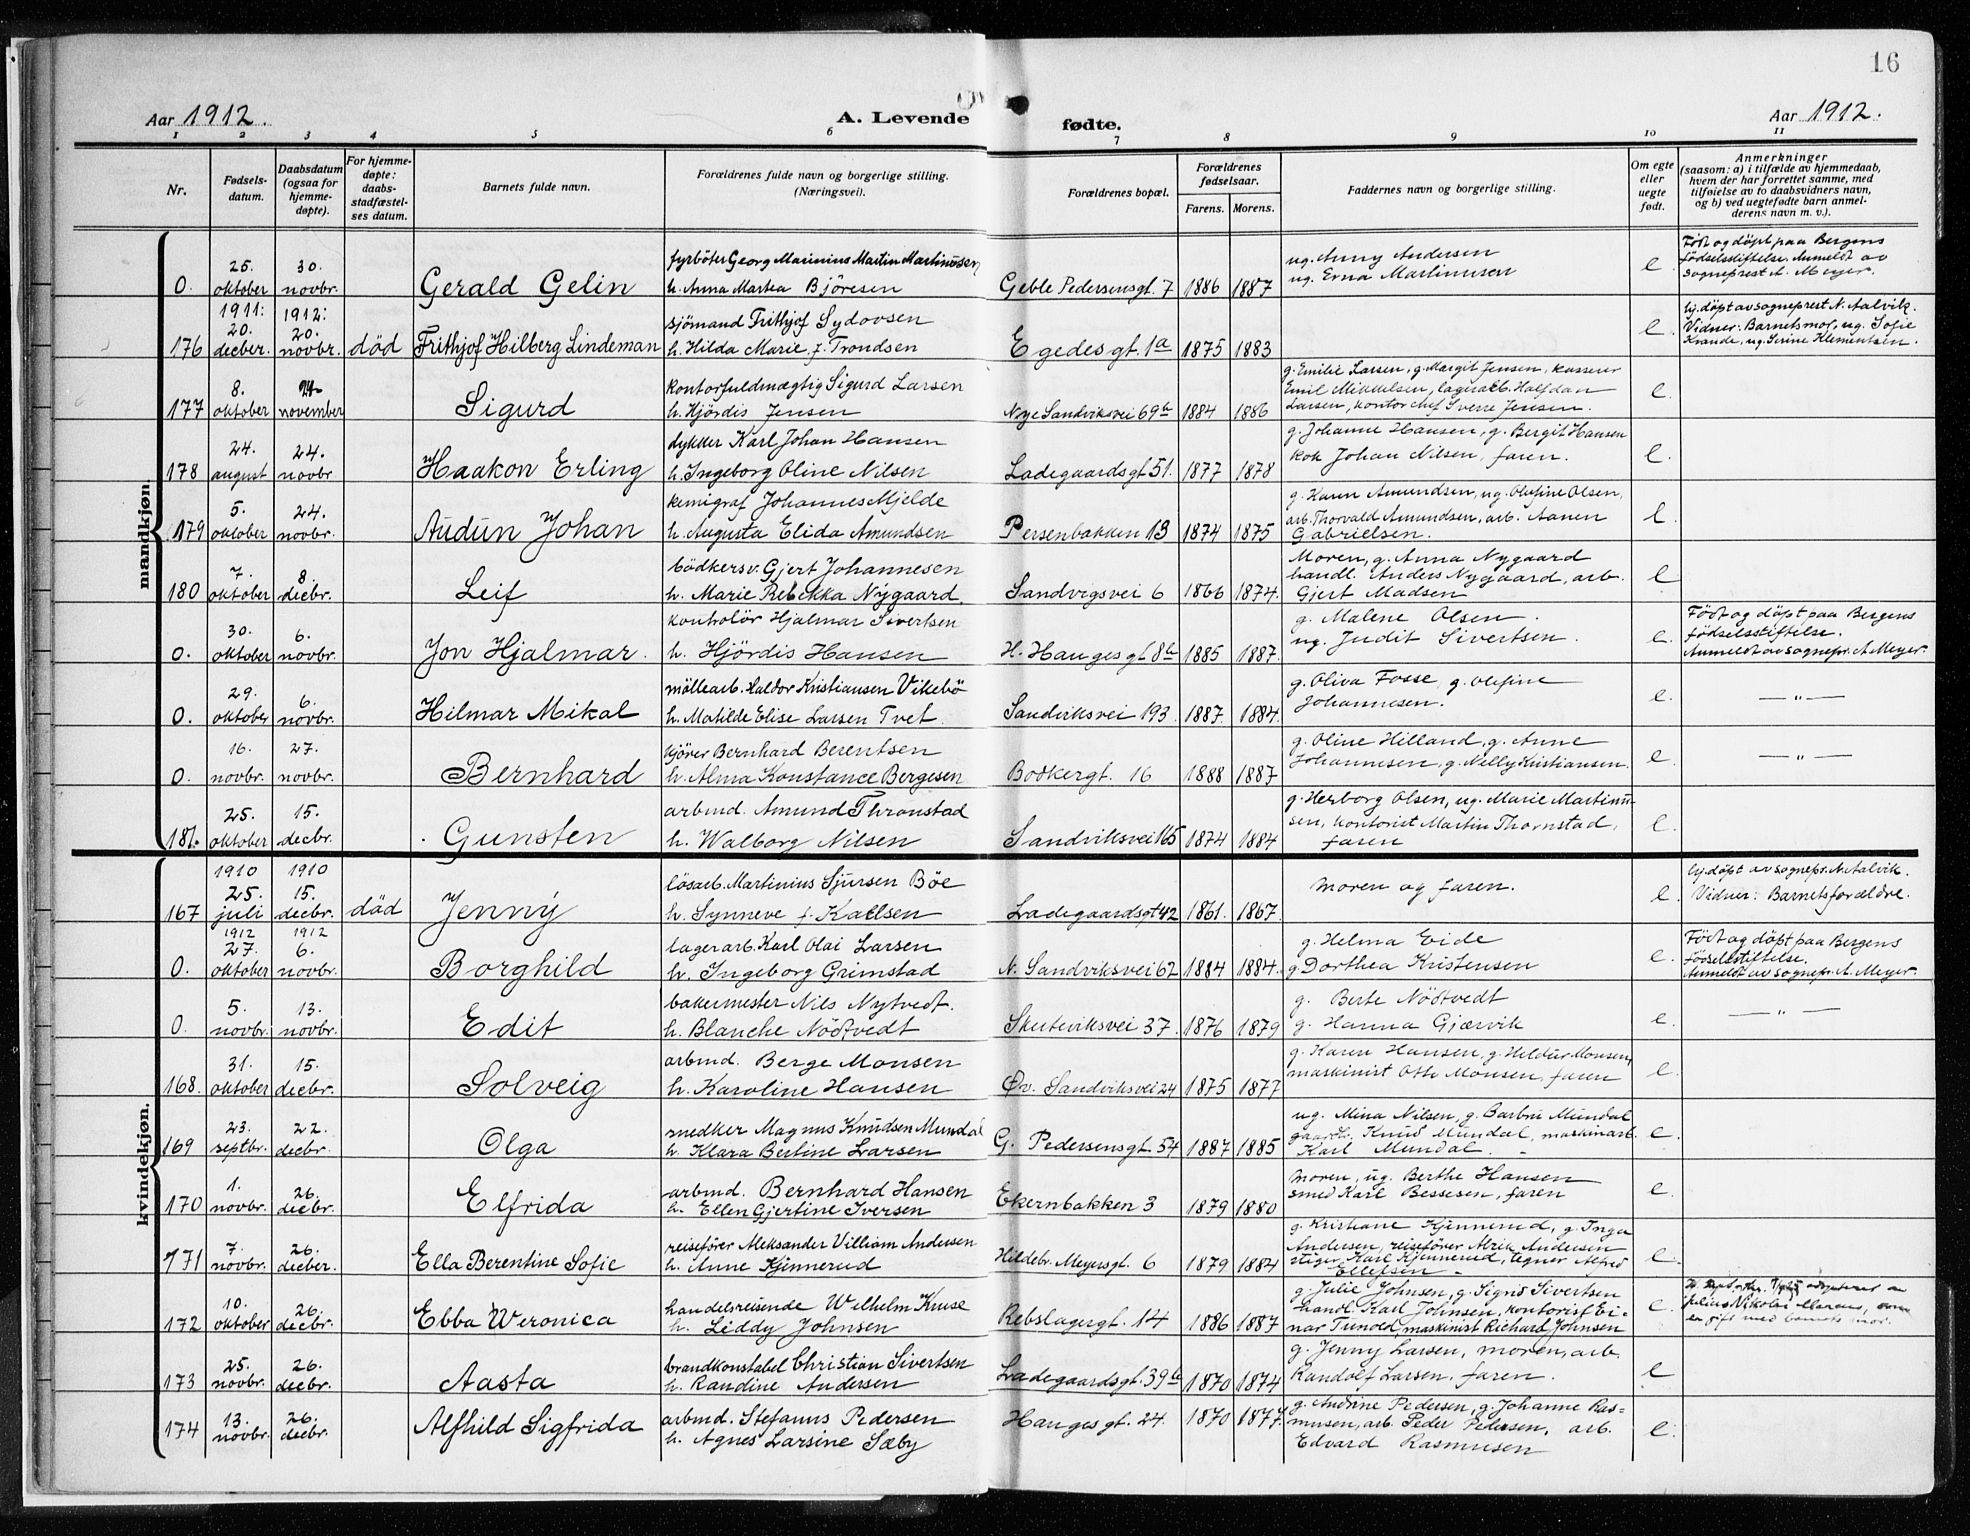 16
Aar 1912.
A. Levende fødte.
Aar 1912.
1 2 3 4 5 6 7 8 9 10 11
Nr.
Fødsels-
datum.
Daabsdatum
(ogsaa for
hjemme-
døpte).
For hjemme-
døpte:
daabs-
stadfæstel-
ses datum.
Barnets fulde navn.
Forældrenes fulde navn og borgerlige stilling.
(Næringsvei).
Forældrenes bopæl.
Forældrenes
fødselsaar.
Farens. Morens.
Faddernes navn og borgerlige stilling.
Om egte
eller
uegte
født.
Anmerkninger
(saasom: a) i tilfælde av hjemmedaab,
hvem der har forrettet samme, med
tilføielse av to daabsvidners navn,
og b) ved uegtefødte barn anmel-
derens navn m. v.).
mandkjøn.
0. 25. oktober 30. novbr. Gerald Gelin
fyrböter Georg Marinius Martin Martinusen
h. Anna Martea Björesen
Geble Pedersensgt. 7 1886 1887
ug. Anny Andersen
ug. Erna Martinusen
e.
Født og døpt paa Bergens
fødselsstiftelse. Anmeldt av
sogneprest A. Meyer.
176 1911: 20. decber. 1912: 20. novbr. död Frithjof Hilberg Lindeman
sjömand Frithjof Sydovsen
h. Hilda Marie f. Trondsen
Egedesgt. 1a 1875 1883
e.
hj. døpt av sogneprest N. Aalvik.
Vidner: Barnets mor, ug. Sofie
Krande, ug. Serine Klementsen.
177 8. oktober 24 november Sigurd
kontorfuldmægtig Sigurd Larsen
h. Hjördis Jensen
Nye Sandviksvei 69b 1884 1886
g. Emilie Larsen, g. Margit Jensen, kasserer
Emil Mikkelsen, lagerarb. Halfdan
Larsen, kontorchef Sverre Jensen.
e.
178 24. august 24. novbr Haakon Erling
dykker Karl Johan Hansen
h. Ingeborg Oline Nilsen
Ladegaardsgt 51. 1877 1878
g. Johanne Hansen, g. Bergit Hansen
kok Johan Nilsen, faren.
e.
179 5. oktober 24. novbr. Audun Johan
kemigraf Johannes Mjelde
h. Augusta Elida Amundsen
Persenbakken 13 1874 1875
g. Karen Amundsen, ug. Olufine Olsen,
arb. Thorvald Amundsen, arb. Aanen
Gabrielsen.
e.
180 7. oktober 8. decbr. Leif
bödkersv. Gjert Johannesen
h. Marie Rebekka Nygaard.
Sandvigsvei 6 1866 1874.
Moren, g. Anna Nygaard
handl. Anders Nygaard, arb.
Gjert Madsen
e
0. 30. oktober 6. novbr. Jon Hjalmar.
kontrolör Hjalmar Sivertsen
h. Hjördis Hansen
H. Haugesgt 8b 1885 1887.
g. Malene Olsen.
ug. Judit Sivertsen.
e.
Født og døpt paa Bergens
fødselsstiftelse.
Anmeldt av sognepr. A Meyer.
0. 29. oktober 6. novbr. Hilmar Mikal
möllearb. Haldor Kristiansen Vikebö
h. Matilde Elise Larsen Tvet.
Sandviksvei 193. 1887. 1884.
g. Oliva Fosse, g. Olufine
Johannesen.
e.
— " —
0. 16. novbr. 27. novbr. Bernhard
kjörer Bernhard Berentsen
h. Alma Konstance Bergesen
Bodkergt. 16 1888 1887
g. Oline Hilland, g. Anne
Johannesen, g. Nelly Kristiansen.
e.
— " —
181. 25. oktober 15. decbr. Gunsten
arbmd. Amund Thronstad
h. Walborg Nilsen
Sandviksvei 165 1874 1884
g. Herborg Olsen, ug. Marie Martinu-
sen, kontorist Martin Thornstad,
faren
e.
kvindekjøn.
167 1910 25. juli 1910 15. decbr. död Jenny
lösarb. Martinius Sjursen Böe
h. Synneve f. Karlsen
Ladegaardsgt 42 1861. 1867.
moren og faren.
e.
hj. døpt av sognepr. N. Aalvik.
Vidner: Barnets forældre.
0. 1912 27. oktober 1912 6. novbr. Borghild
lagerarb. Karl Olai Larsen
h. Ingeborg Grimstad
N. Sandviksvei 62 1884 1884.
g. Helma Eide
g. Dorthea Kristensen
e.
Født og døpt paa Bergens
fødselsstiftelse.
Anmeldt av sognepr. A. Meyer.
0. 5. novbr. 13. novbr. Edit
bakermester Nils Nytvedt.
h. Blanche Nödtvedt
Skuteviksvei 37. 1876 1879
g. Berte Nödtvedt
g. Hanna Gjærvik
e.
— " —
168. 31. oktober 15. decbr. Solveig
arbmd. Berge Monsen
h. Karoline Hansen
Øv. Sandviksvei 24 1875 1877
g. Karen Hansen, g. Heldur Monsen,
maskinist Otto Monsen, faren
e.
169 23. septbr. 22. decbr. Olga
snedker Magnus Knudsen Mundal
h. Klara Bertine Larsen
G. Pedersensgt. 54 1887 1885
ug. Mina Nilsen, g. Barbri Mundal
gaardbr. Knud Mundal, maskinarb.
Karl Mundal.
e.
170 1. novbr. 26. decbr. Elfrida
arbmd. Bernhard Hansen
h. Ellen Gjertine Iversen
Ekernbakken 3 1879 1880
Moren, ug. Berthe Hansen
smed Karl Bessesen, faren
e.
171 7. novbr. 26. decber. Ella Berentine Sofie
reisefører Aleksander Villiam Andersen
h. Anne Kjinnerud
Hildebr. Meyersgt. 6 1879 1884
g. Kristiane Kjinnerud, g. Inga
Andersen, reisefører Alrik Andersen
stiger Karl Kjennerud, tegner Alfred
Ellefsen
e.
172 10. oktober 26. decbr. Ebba Weronica
handelsreisende Wilhelm Kruse
h. Liddy Johnsen
Rebslagergt. 14 1886 1887
g. Julie Johnsen, g. Sigrid Sivertsen
handl. Karl Johnsen, kontorist Ei-
nar Tunold, maskinist Richard Johnsen
e.
adopteret av
Julius Nikolai som
er gift med barnets mor.
173 25. novbr. 26. decbr. Aasta
brandkonstabel Christian Sivertsen
h. Randine Andersen
Ladegaardsgt. 39b 1870 1874
g. Jenny Larsen, moren, arb.
Randolf Larsen, faren.
e
174 13. novbr. 26. decbr. Alfhild Sigfrida
arbmd. Stefanus Pedersen
h. Agnes Larsine Sæby
Haugesgt. 24. 1870 1877.
g. Andrine Pedersen, g. Johanne Ras-
musen, arb. Peder Pedersen, arb.
Edvard Rasmusen
e.